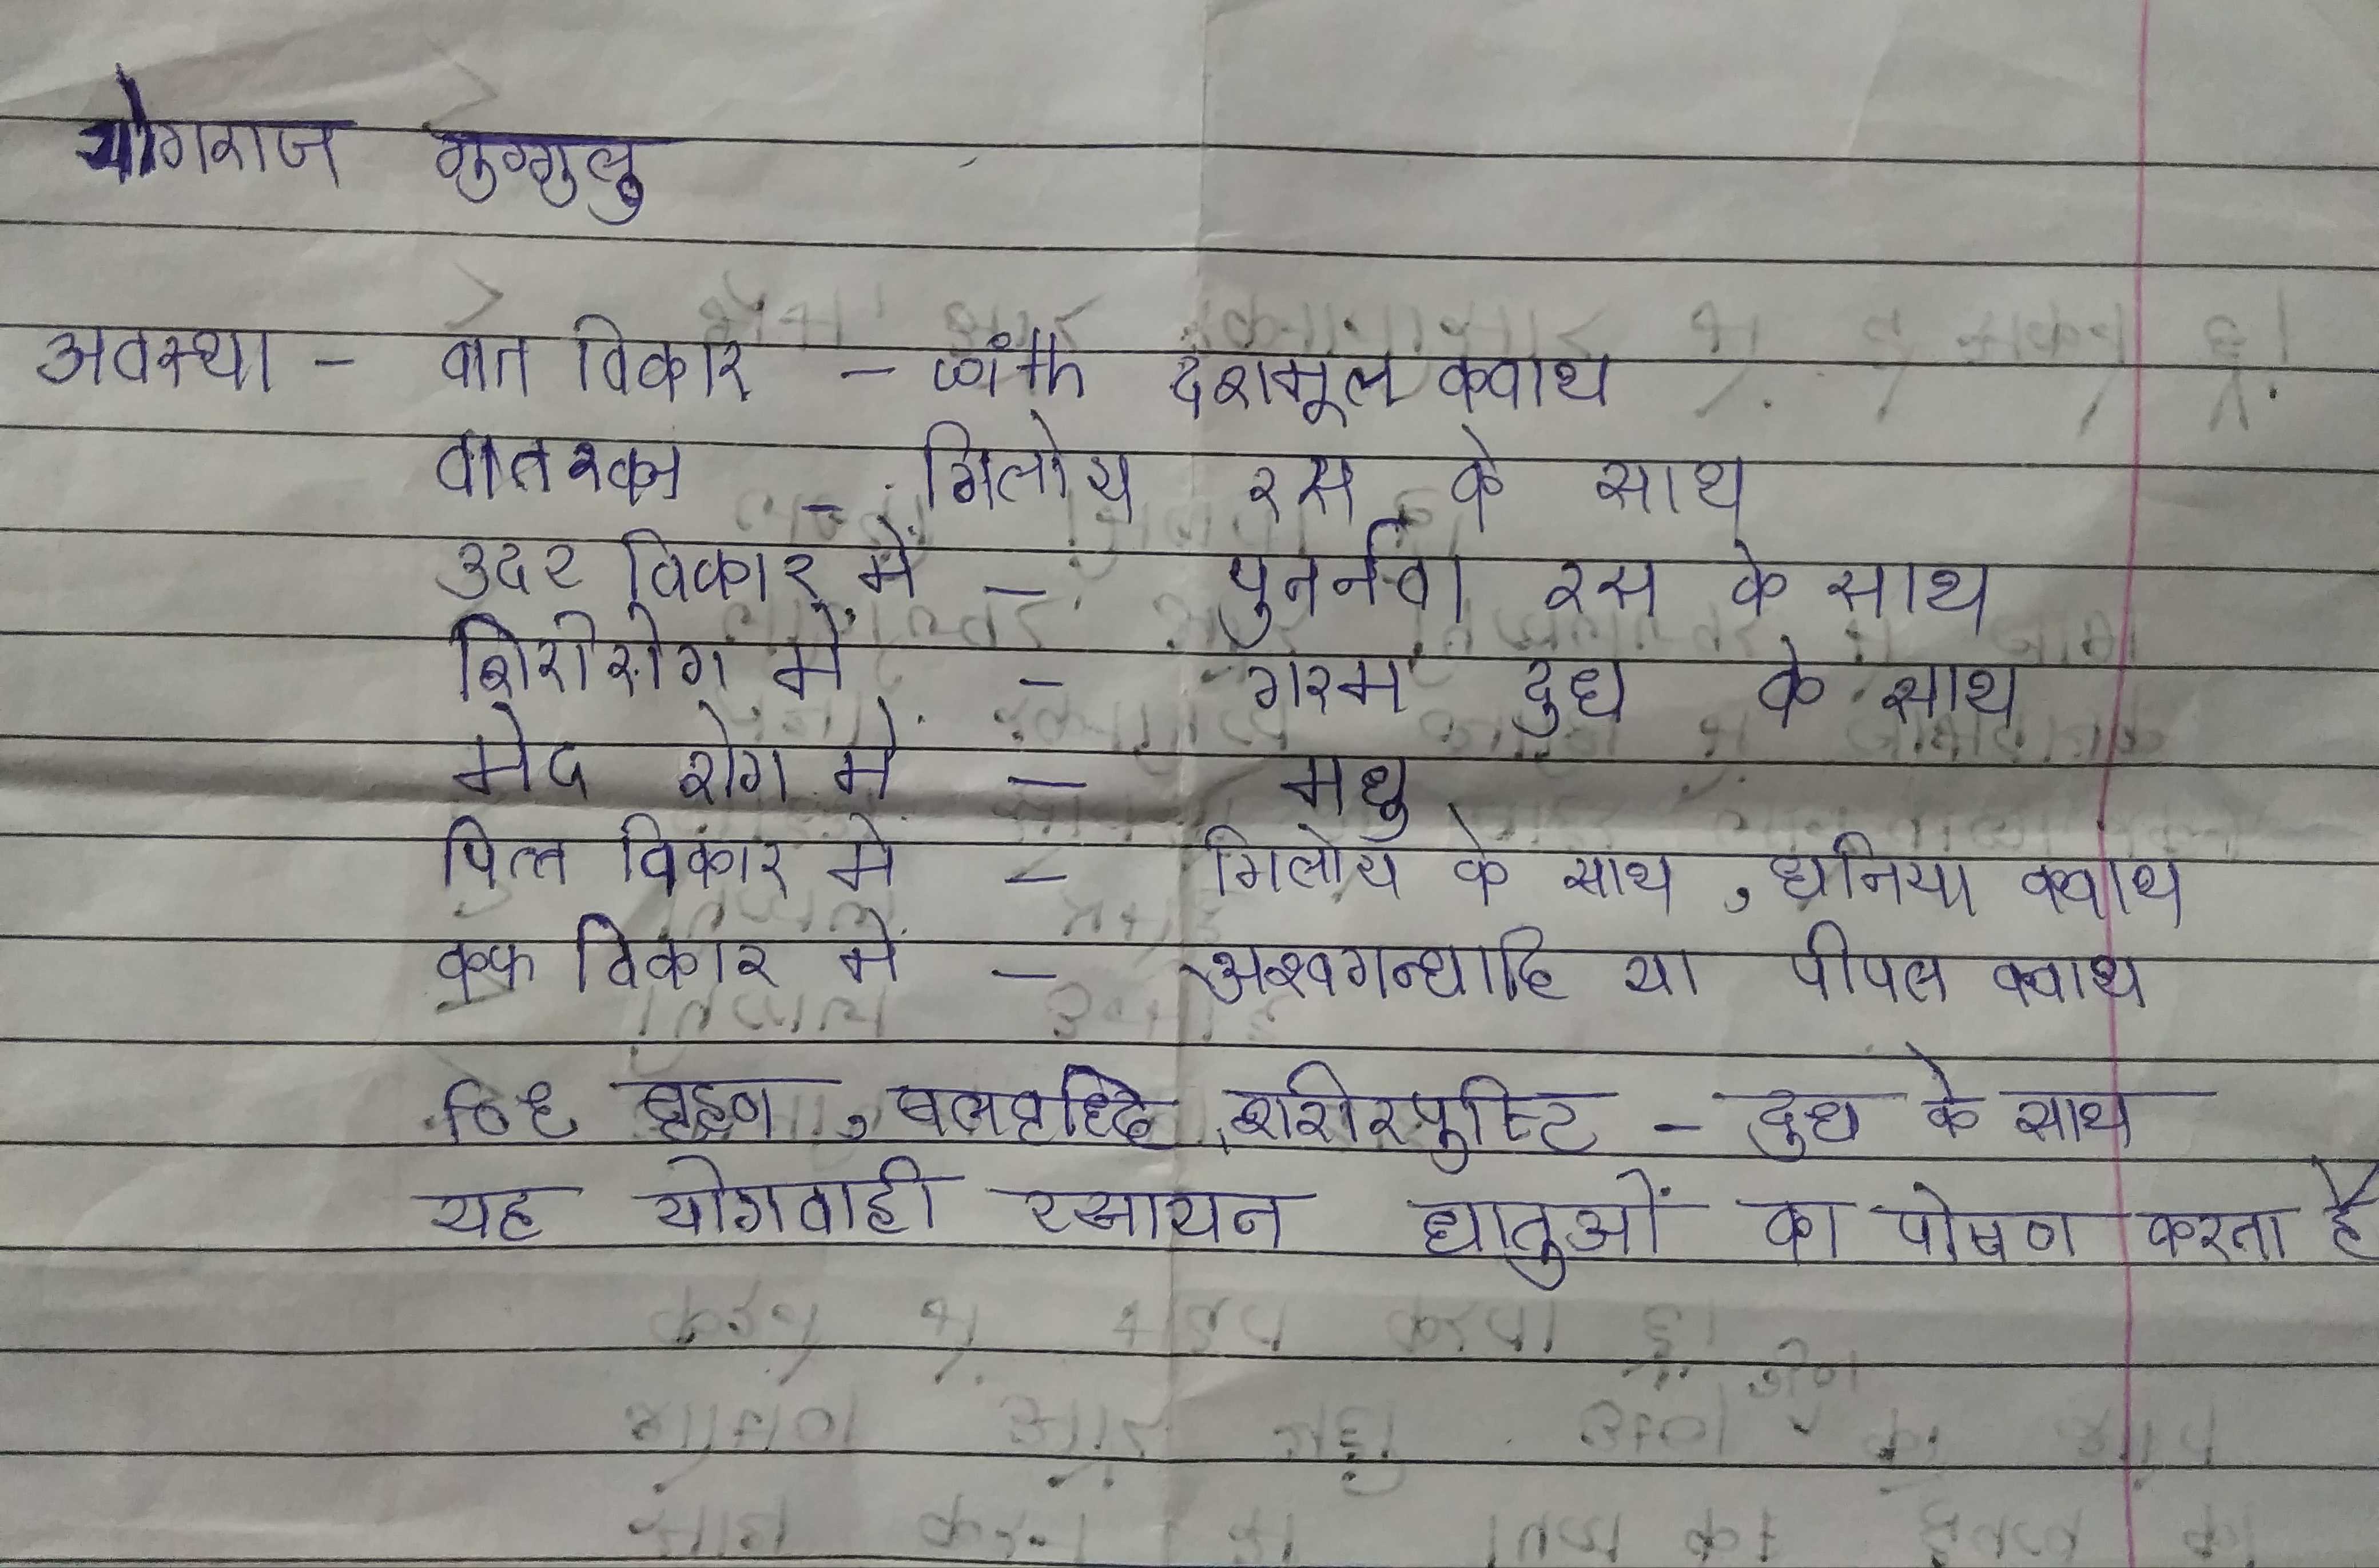 योगराज गुग्गुलु
अवस्था - वात विकार - with दशमूल क्वाथ
वातरक्त - गिलोय रस के साथ
उदर विकार में - पुनर्नवा रस के साथ
शिरोरोग में - गरम दुध के साथ
मेद रोग में - मधु
पित्त विकार में - गिलोय के साथ, धनिया क्वाथ
कफ विकार में - अश्वगन्धादि या पीपल क्वाथ
बृहण, बलवृद्धि, शरीरपुष्टि - दुध के साथ
यह योगवाही रसायन धातुओं का पोषण करता है